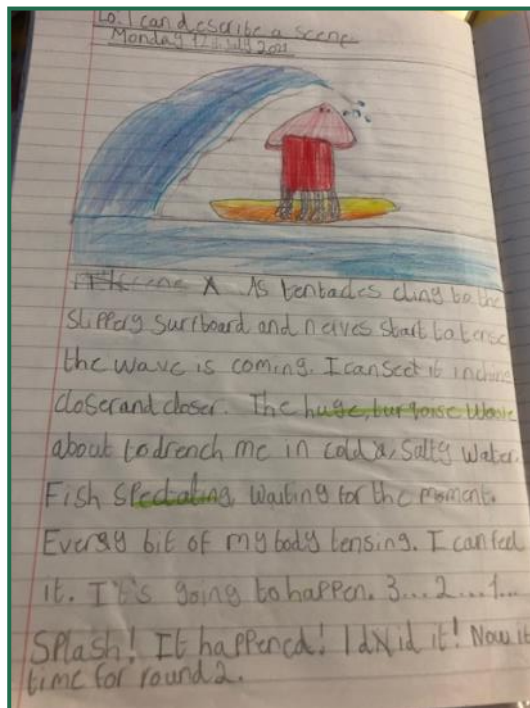 Lo: I can describe a scene
Monday 12th July 2021
As tentacles cling to the
slippery surfboard and nerves start to tense
the wave is coming. I can see it inching
closer and closer. The huge, turquoise wave
about to drench me in cold, salty water.
Fish spectating, waiting for the moment.
Every bit of my body tensing. I can feel
it. It's going to happen. 3... 2... 1...
Splash! It happened! I did it! Now it
time for round 2.